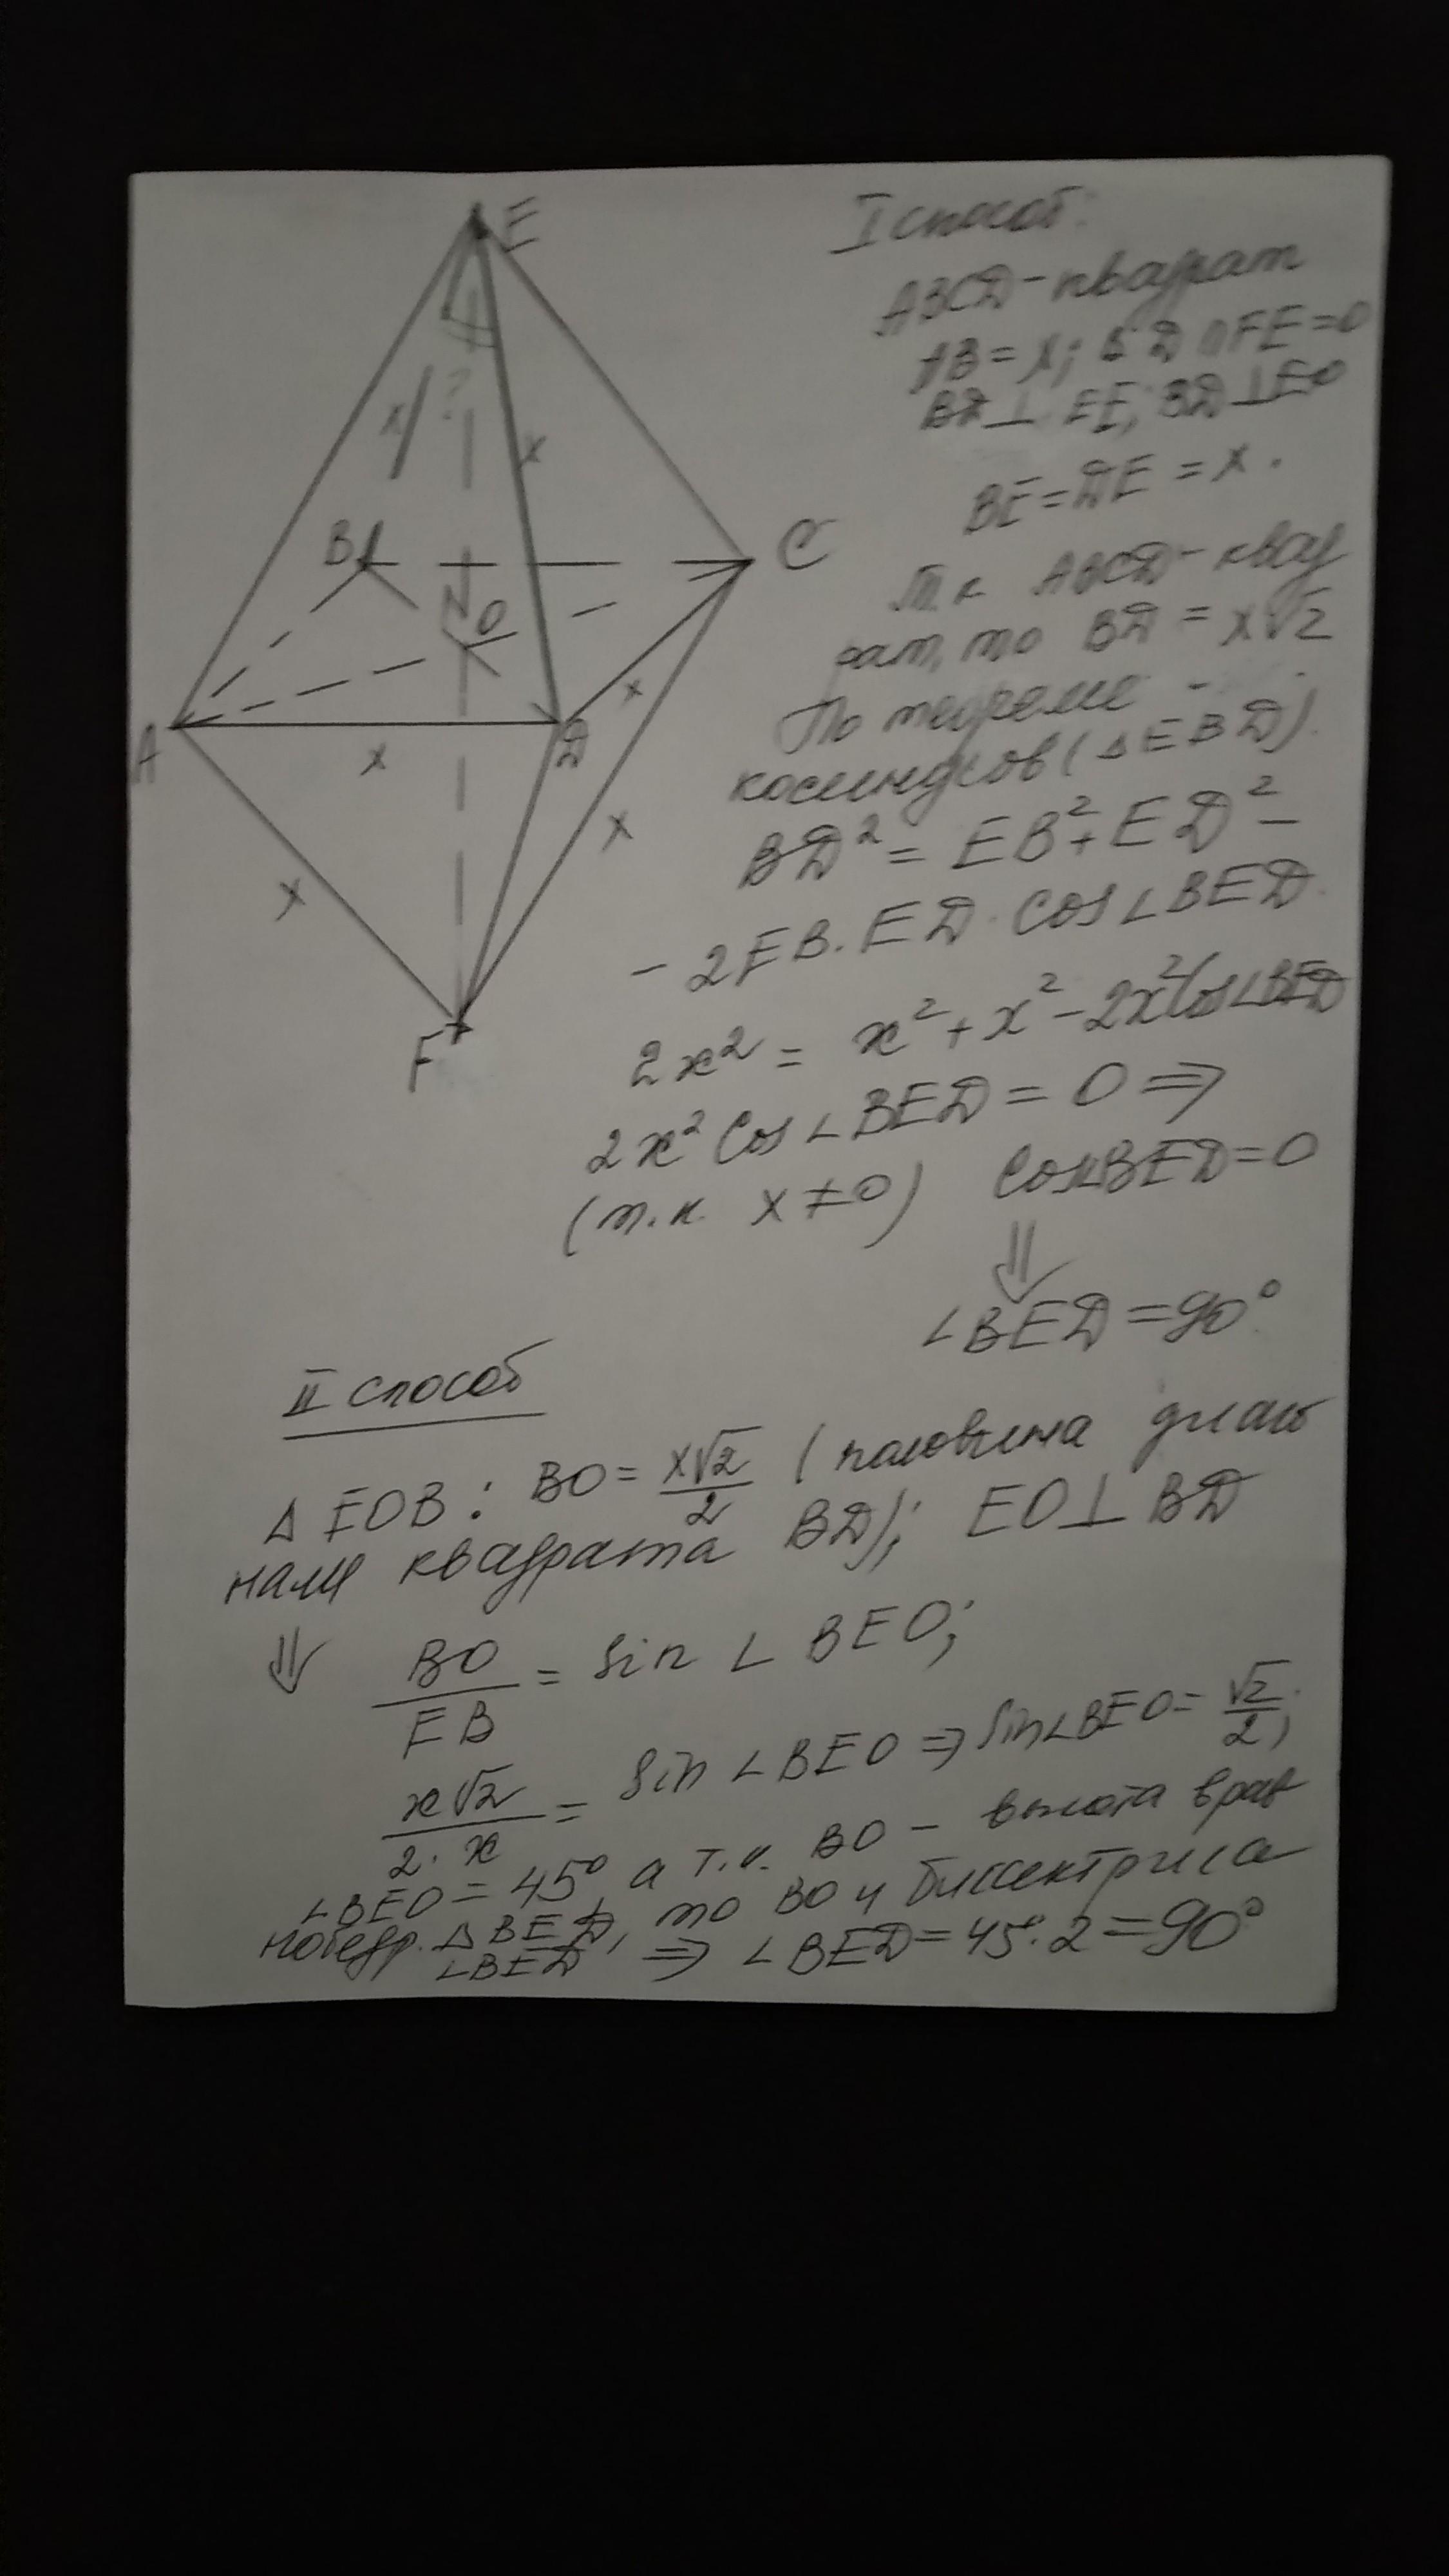 E
x
?
x
B
C
O
A
x
D
x
x
x
F
I способ:
ABCD - квадрат
AB = x; BD ∩ FE = O
BD ⊥ FE; BD ⊥ EO
BE = DE = x.
Т.к ABCD - квад
рат, то BD = x√2
По теореме
косинусов (△EBD).
BD² = EB² + ED² −
− 2EB · ED · Cos∠BED.
2x² = x² + x² − 2x² Cos∠BED
2x² Cos∠BED = 0 ⇒
(т.к. x ≠ 0) Cos∠BED = 0
⇓
∠BED = 90°
II способ
△EOB: BO = x√2/2 (половина диаго
нали квадрата BD); EO ⊥ BD
⇓ BO/EB = Sin∠BEO;
x√2/2·x = Sin∠BEO ⇒ Sin∠BEO = √2/2;
∠BEO = 45°, а т.к. BO - высота в рав
нобедр. △BED, то BO и биссектриса
∠BED ⇒ ∠BED = 45°·2 = 90°